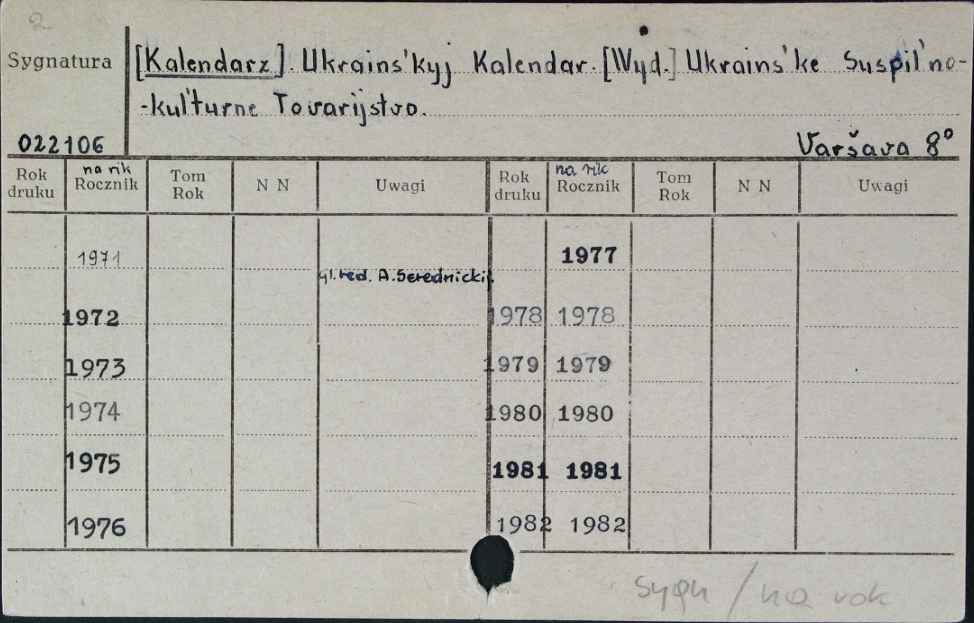 2
Sygnatura
[Kalendarz]. Ukrains'kyj Kalendar. [Wyd.] Ukrains'ke Suspil'no-
-kul'turne Tovarijstvo.
022106
Varšava 8°
Rok druku na rik Rocznik Tom Rok N N Uwagi Rok druku na rik Rocznik Tom Rok N N Uwagi
1971 1977
gł. red. A. Serednickij.
1972 1978 1978
1973 1979 1979
1974 1980 1980
1975 1981 1981
1976 1982 1982
sygn / na rok